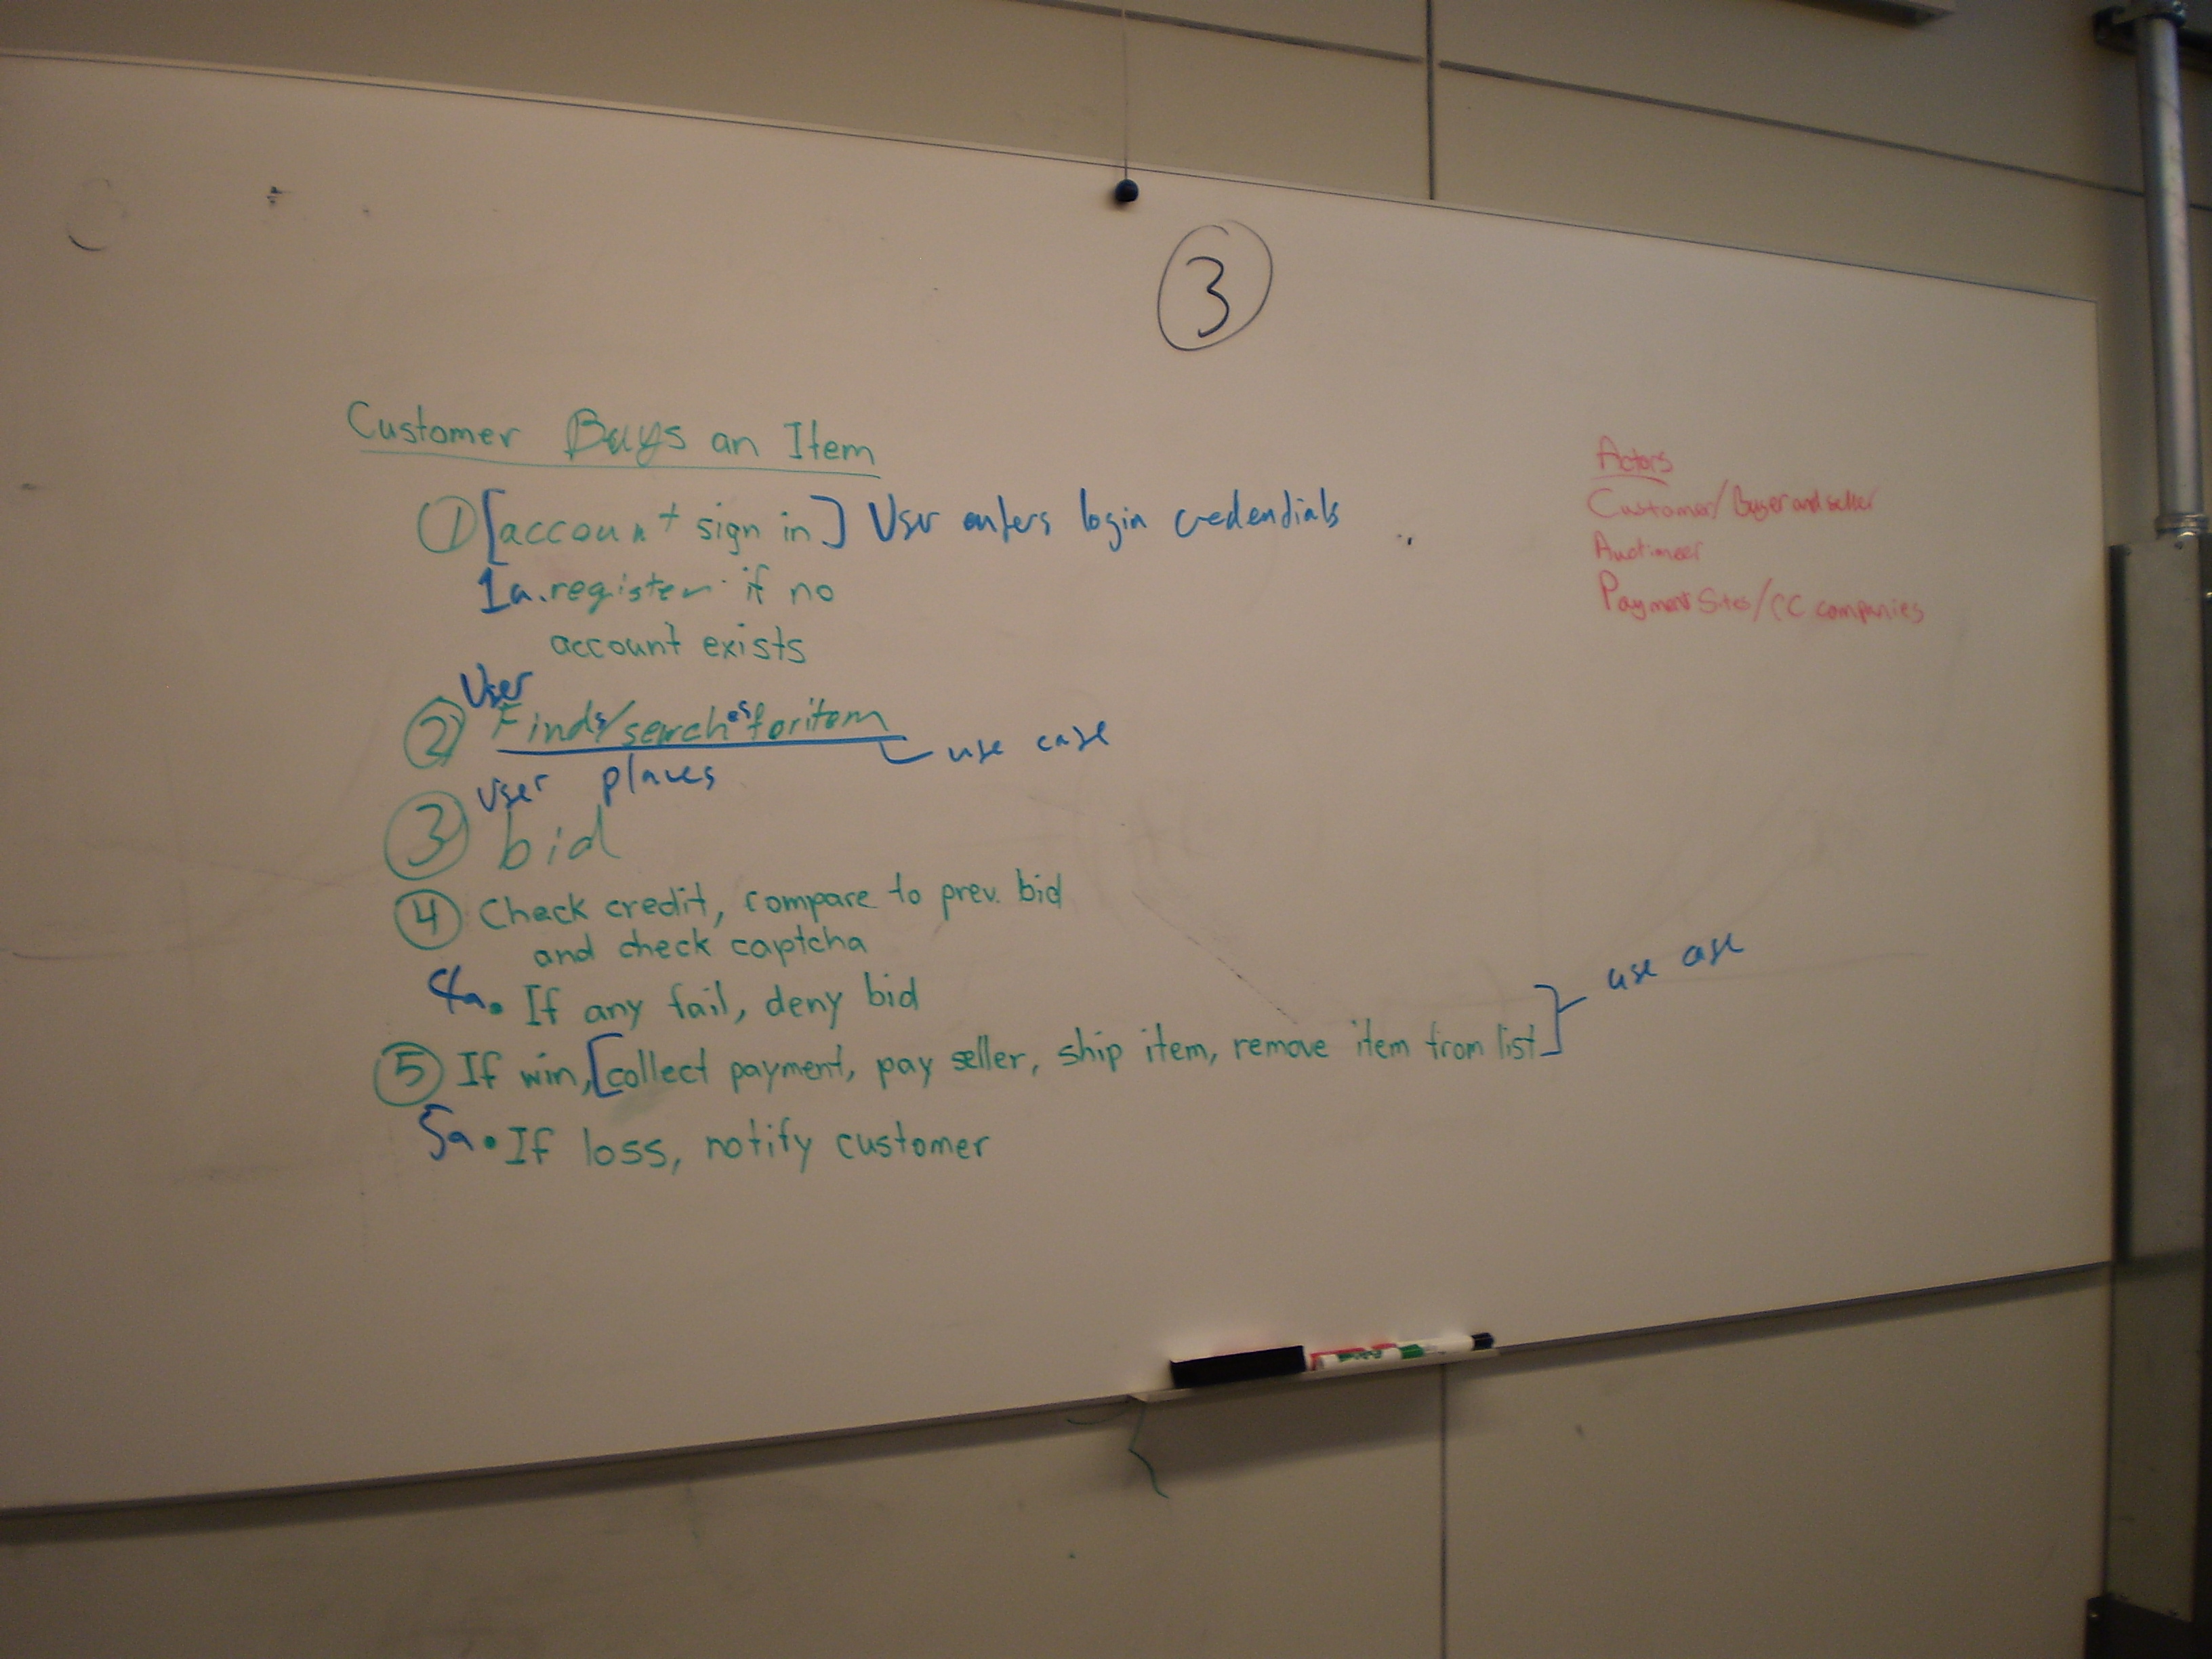 3
Customer Buys an Item
① [account sign in] User enters login credentials
1a. register if no
account exists
② User Finds/searches for item use case
User places
③ bid
④ Check credit, compare to prev. bid
and check captcha
4a. If any fail, deny bid
⑤ If win, [collect payment, pay seller, ship item, remove item from list] use case
5a. If loss, notify customer
Actors
Customer/Buyer and seller
Auctineer
Payment Sites/CC companies